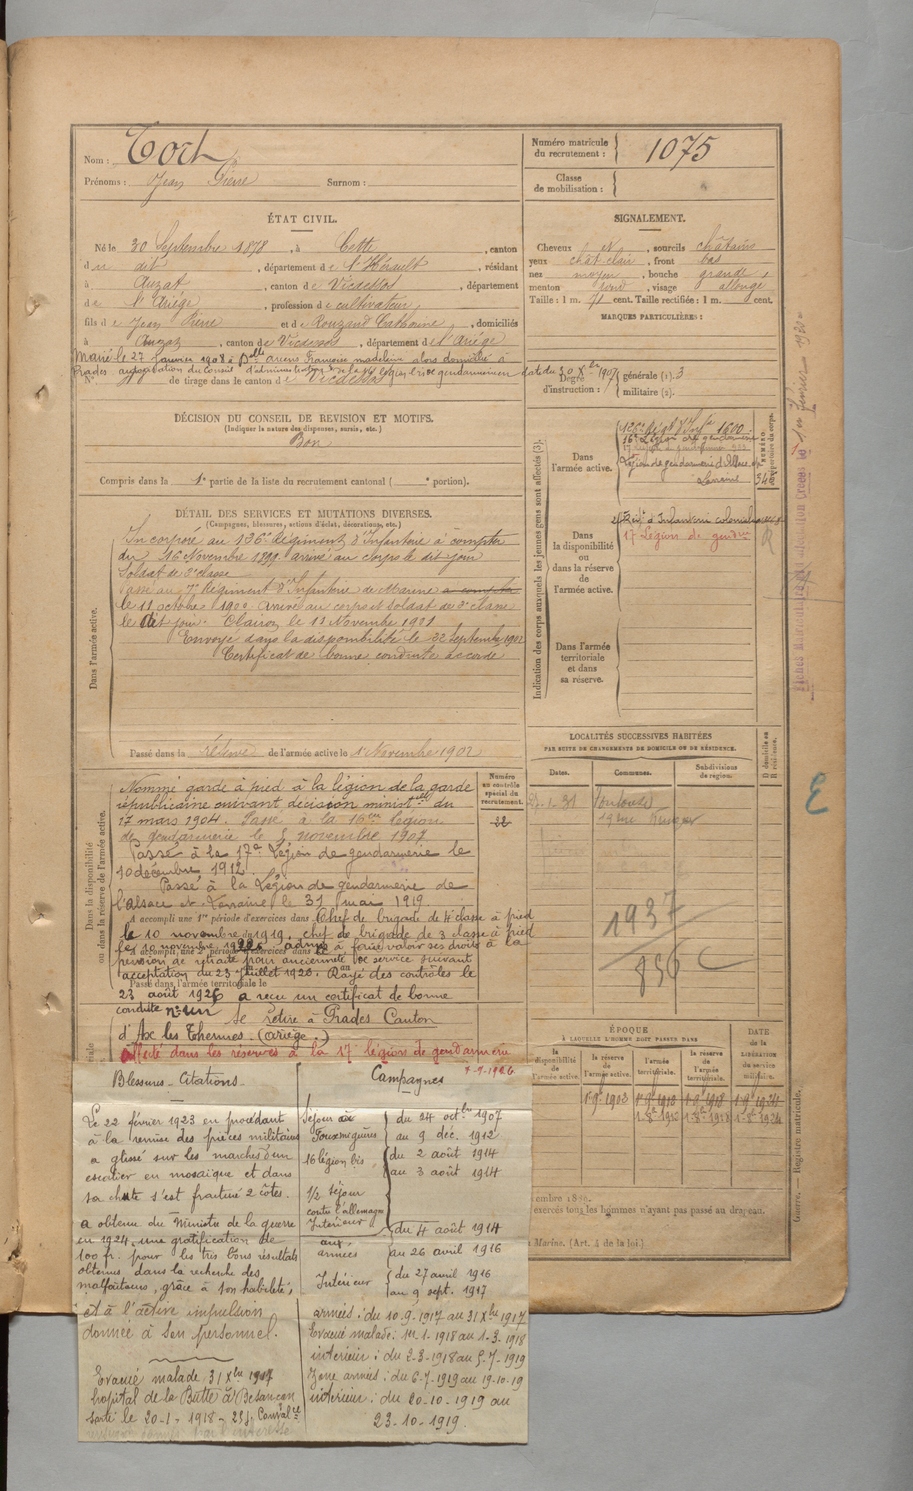 Nom : Tort
Prénoms : Jean Pierre Surnom :
Numéro matricule du recrutement : 1075
Classe de mobilisation :
ÉTAT CIVIL.
Né le 30 Septembre 1878, à Cette, canton
du dit, département de l'Hérault, résidant
à Auzat, canton de Vicdessos, département
de l'Ariège, profession de cultivateur
fils de Jean Pierre et de Rouzaud Catherine, domiciliés
à Auzat, canton de Vicdessos, département de l'Ariège
Marié le 27 janvier 1908 à Delle Françoise madeleine alors domiciliée à
Prades autorisation du Conseil d'administration de la 16e légion bis de gendarmerie en date du 20 Xbre 1907
N° de tirage dans le canton de Vicdessos
SIGNALEMENT.
Cheveux sourcils châtains
yeux chât. clair, front bas
nez moyen, bouche grande
menton rond, visage allongé
Taille : 1 m. 71 cent. Taille rectifiée : 1 m. cent.
MARQUES PARTICULIÈRES :
Degré d'instruction : générale (1). 3
militaire (2).
DÉCISION DU CONSEIL DE REVISION ET MOTIFS.
(Indiquer la nature des dispenses, sursis, etc.)
Bon
Compris dans la 1e partie de la liste du recrutement cantonal ( e portion).
DÉTAIL DES SERVICES ET MUTATIONS DIVERSES.
(Campagnes, blessures, actions d'éclat, décorations, etc.)
Dans l'armée active.
Incorporé au 136e Régiment d'Infanterie à compter
du 16 Novembre 1899 arrivé au corps le dit jour
Soldat de 2e classe
Passé au 7e Régiment d'Infanterie de Marine a compter
le 11 octobre 1900 arrivé au corps et Soldat de 2e classe
le dit jour. Clairon le 11 Novembre 1901
Envoyé dans la disponibilité le 22 Septembre 1902
Certificat de bonne conduite accordé
Passé dans la réserve de l'armée active le 1 Novembre 1902
Indication des corps auxquels les jeunes gens sont affectés (3).
Dans l'armée active.
136e Régt d'Infie 1600
16e Légion de gendarmerie
Légion de gendarmerie d'Alsace et Lorraine 342
Dans la disponibilité ou dans la réserve de l'armée active.
Régt d'Infanterie coloniale
17 Légion de gendrie
Dans l'armée territoriale et dans sa réserve.
Dans la disponibilité ou dans la réserve de l'armée active.
Numéro au contrôle spécial du recrutement.
22
Nommé garde à pied à la légion de la garde
républicaine suivant décision ministelle du
17 mars 1904. Passé à la 16eme légion
de gendarmerie le 5 novembre 1907
Passé à la 17e Légion de gendarmerie le
10 décembre 1912.
Passé à la Légion de gendarmerie de
l'Alsace et Lorraine le 31 mai 1919
A accompli une 1re période d'exercices dans Chef de brigade de 4e classe à pied
le 10 novembre 1919. chef de brigade de 3 classe à pied
A accompli une 2e période d'exercices dans
le 10 novembre 1922 admis à faire valoir ses droits à la
pension de retraite pour ancienneté de service suivant
Passé dans l'armée territoriale le
acceptation du 23 juillet 1926. Rayé des contrôles le
23 août 1926 a reçu un certificat de bonne
conduite n° un se retire à Prades Canton
d'Ax les Thermes (Ariège)
Affecté dans les réserves à la 17 légion de gendarmerie
7-9-1926
LOCALITÉS SUCCESSIVES HABITÉES
PAR SUITE DE CHANGEMENTS DE DOMICILE OU DE RÉSIDENCE.
Dates. Communes. Subdivisions de région. D domicile ou R résidence.
1-31 Toulouse
19 rue R
1937
856
E
ÉPOQUE
À LAQUELLE L'HOMME DOIT PASSER DANS
la disponibilité de l'armée active. la réserve de l'armée active. l'armée territoriale. la réserve de l'armée territoriale. DATE DE LA LIBÉRATION du service militaire.
1-9bre 1903 1-9-1912 1-9-1918 1-9-1924
embre 1899.
exercés tous les hommes n'ayant pas passé au drapeau.
Marine. (Art. 4 de la loi.)
Guerre. — Registre matricule.
Blessures - Citations
Le 22 février 1923 en procédant
à la remise des pièces militaires
a glissé sur les marches d'un
escalier en mosaïque et dans
sa chute s'est fracturé 2 côtes.
a obtenu du Ministre de la guerre
en 1924, une gratification de
100 fr. pour les très bons résultats
obtenus dans la recherche des
malfaiteurs, grâce à son habileté,
et à l'active impulsion
donnée à son personnel.
Evacué malade 31 Xbre 1917
hôpital de la Butte à Besançon
sorti le 20-1-1918 - 23 j. Convalce
Campagnes
Séjour aux Touxmiguires du 24 octbre 1907
au 9 déc. 1912
16 légion bis du 2 août 1914
au 3 août 1914
1/2 séjour
contre l'allemagne
Intérieur du 4 août 1914
aux armées au 26 avril 1916
Intérieur du 27 avril 1916
au 9 sept. 1917
armées : du 10.9.1917 au 31 Xbre 1917
Evacué malade : 1er-1-1918 au 1-3-1918
intérieur : du 2-3-1918 au 5-7-1919
Zone armées : du 6-7-1919 au 19-10-19
intérieur : du 20-10-1919 au
23-10-1919.